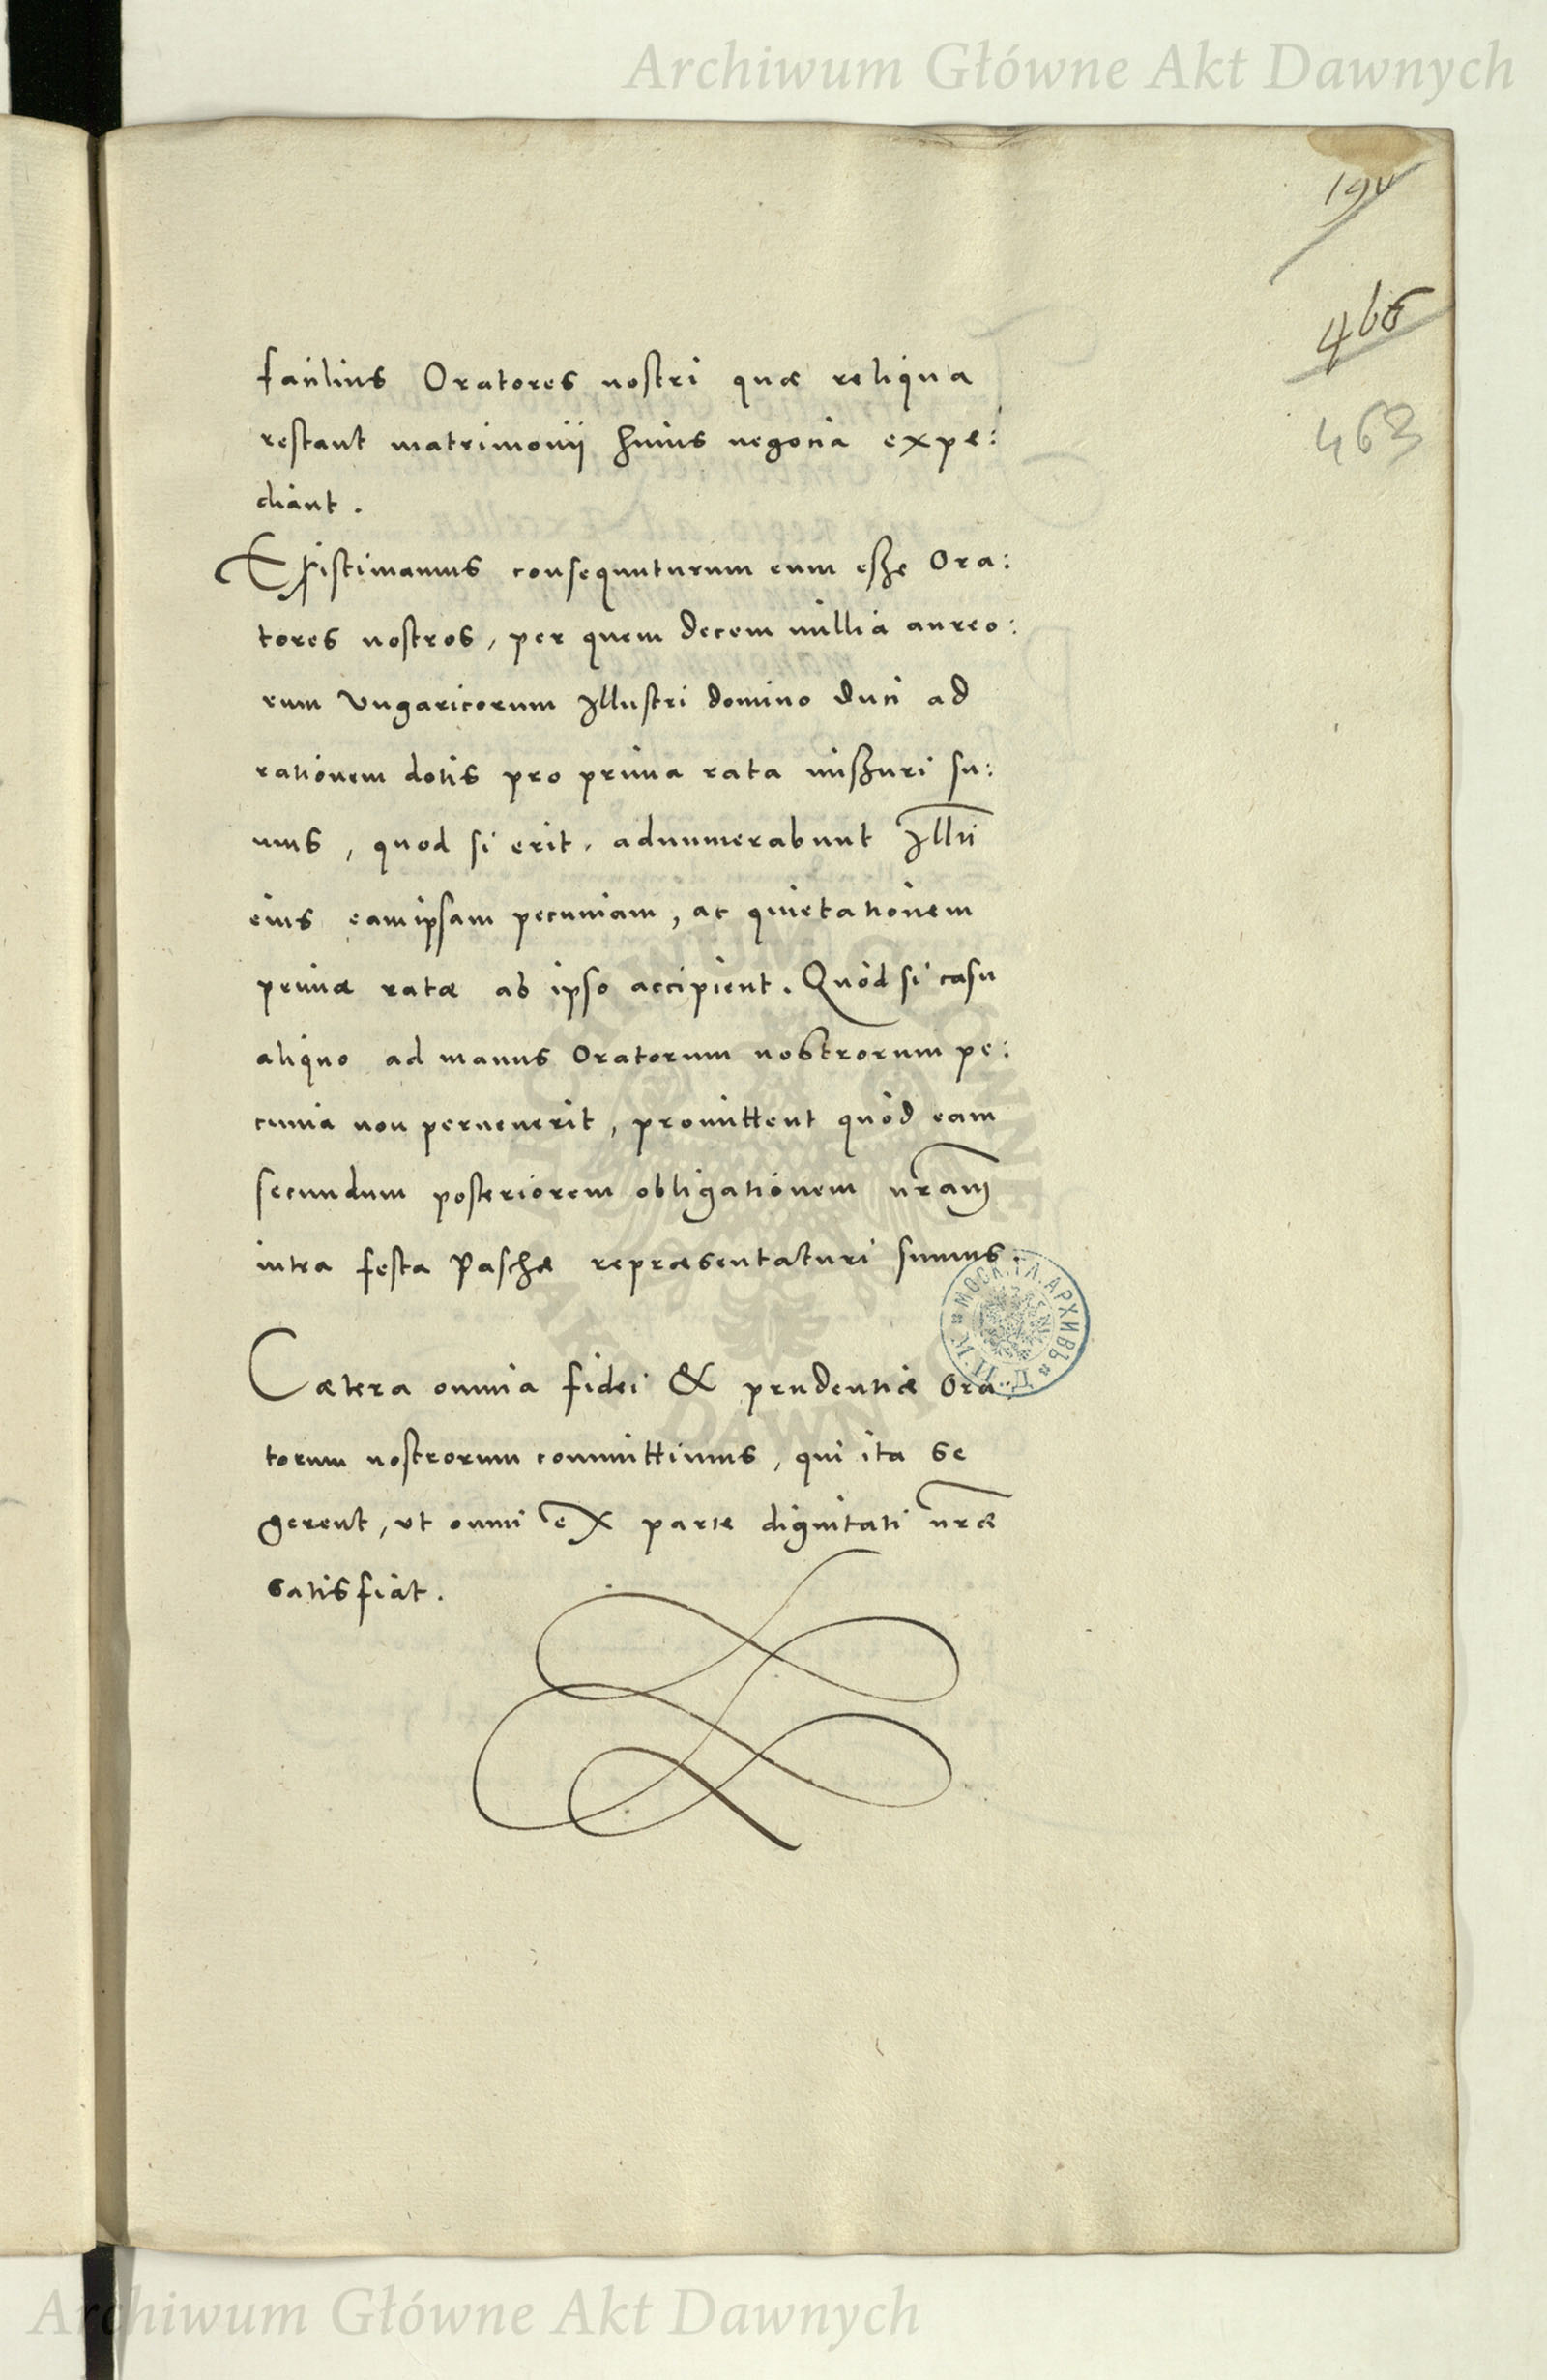 Archiwum Główne Akt Dawnych
194
466
463
facilius Oratores nostri quæ reliqua
restant matrimonij huius negocia expe:
diant.
Existimamus consequuturum eum esse Ora:
tores nostros, per quem decem millia aureo:
rum Vngaricorum Illustri domino Duci ad
rationem dotis pro prima rata missuri su:
mus, quod si erit, adnumerabunt Illri
eius eamipsam pecuniam, ac quietationem
primæ ratæ ab ipso accipient. Quòd si casu
aliquo ad manus Oratorum nostrorum pe:
cunia non peruenerit, promittent quòd eam
secundum posteriorem obligationem nram
intra festa Paschæ repræsentaturi sumus.
Cætera omnia fidei & prudentiæ Ora
torum nostrorum committimus, qui ita se
gerent, vt omni ex parte dignitati nræ
satisfiat.
ARCHIWUM GŁÓWNE AKT DAWNYCH
МОСК. ГЛ. АРХИВЪ
Archiwum Główne Akt Dawnych